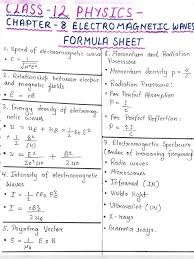 CLASS-12 PHYSICS -
CHAPTER-8 ELECTROMAGNETIC WAVES
FORMULA SHEET
1. Speed of electromagnetic waves
C = 1/√μ₀ε₀
2. Relationship between electric and magnetic fields
E = cB
3. Energy density of electromagnetic waves
4. Intensity of electromagnetic waves
I = 1/2 cε₀ E₀²
5. Poynting Vector
S = 1/μ₀ E × B
6. Momentum and Radiation Pressure
Momentum density
For Perfect Absorption
P = I/c
For Perfect Reflection:
P = 2I/c
7. Electromagnetic Spectrum
(order of increasing frequency)
Radio waves
Microwaves
Infrared (IR)
Visible light
Ultraviolet (UV)
X-rays
Gamma rays.